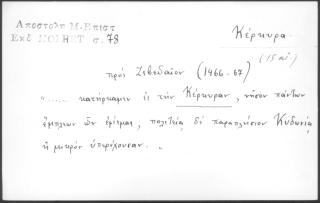 Αποστολη Μ. Επιστ
Εκδ NOIRET σ. 78
Κέρκυρα
(15 αἰ)
πρὸς Ζεβεδαῖον (1466-67)
"..... κατήρκαμεν εἰς τὴν Κέρκυραν, νῆσον πάντων
ἔμπλεων ὧν ἐρίεμαι, πολιτείᾳ δὲ παραπλησίον Κυδωνίᾳ
ἢ μικρὸν ὑπερέχουσαν. „